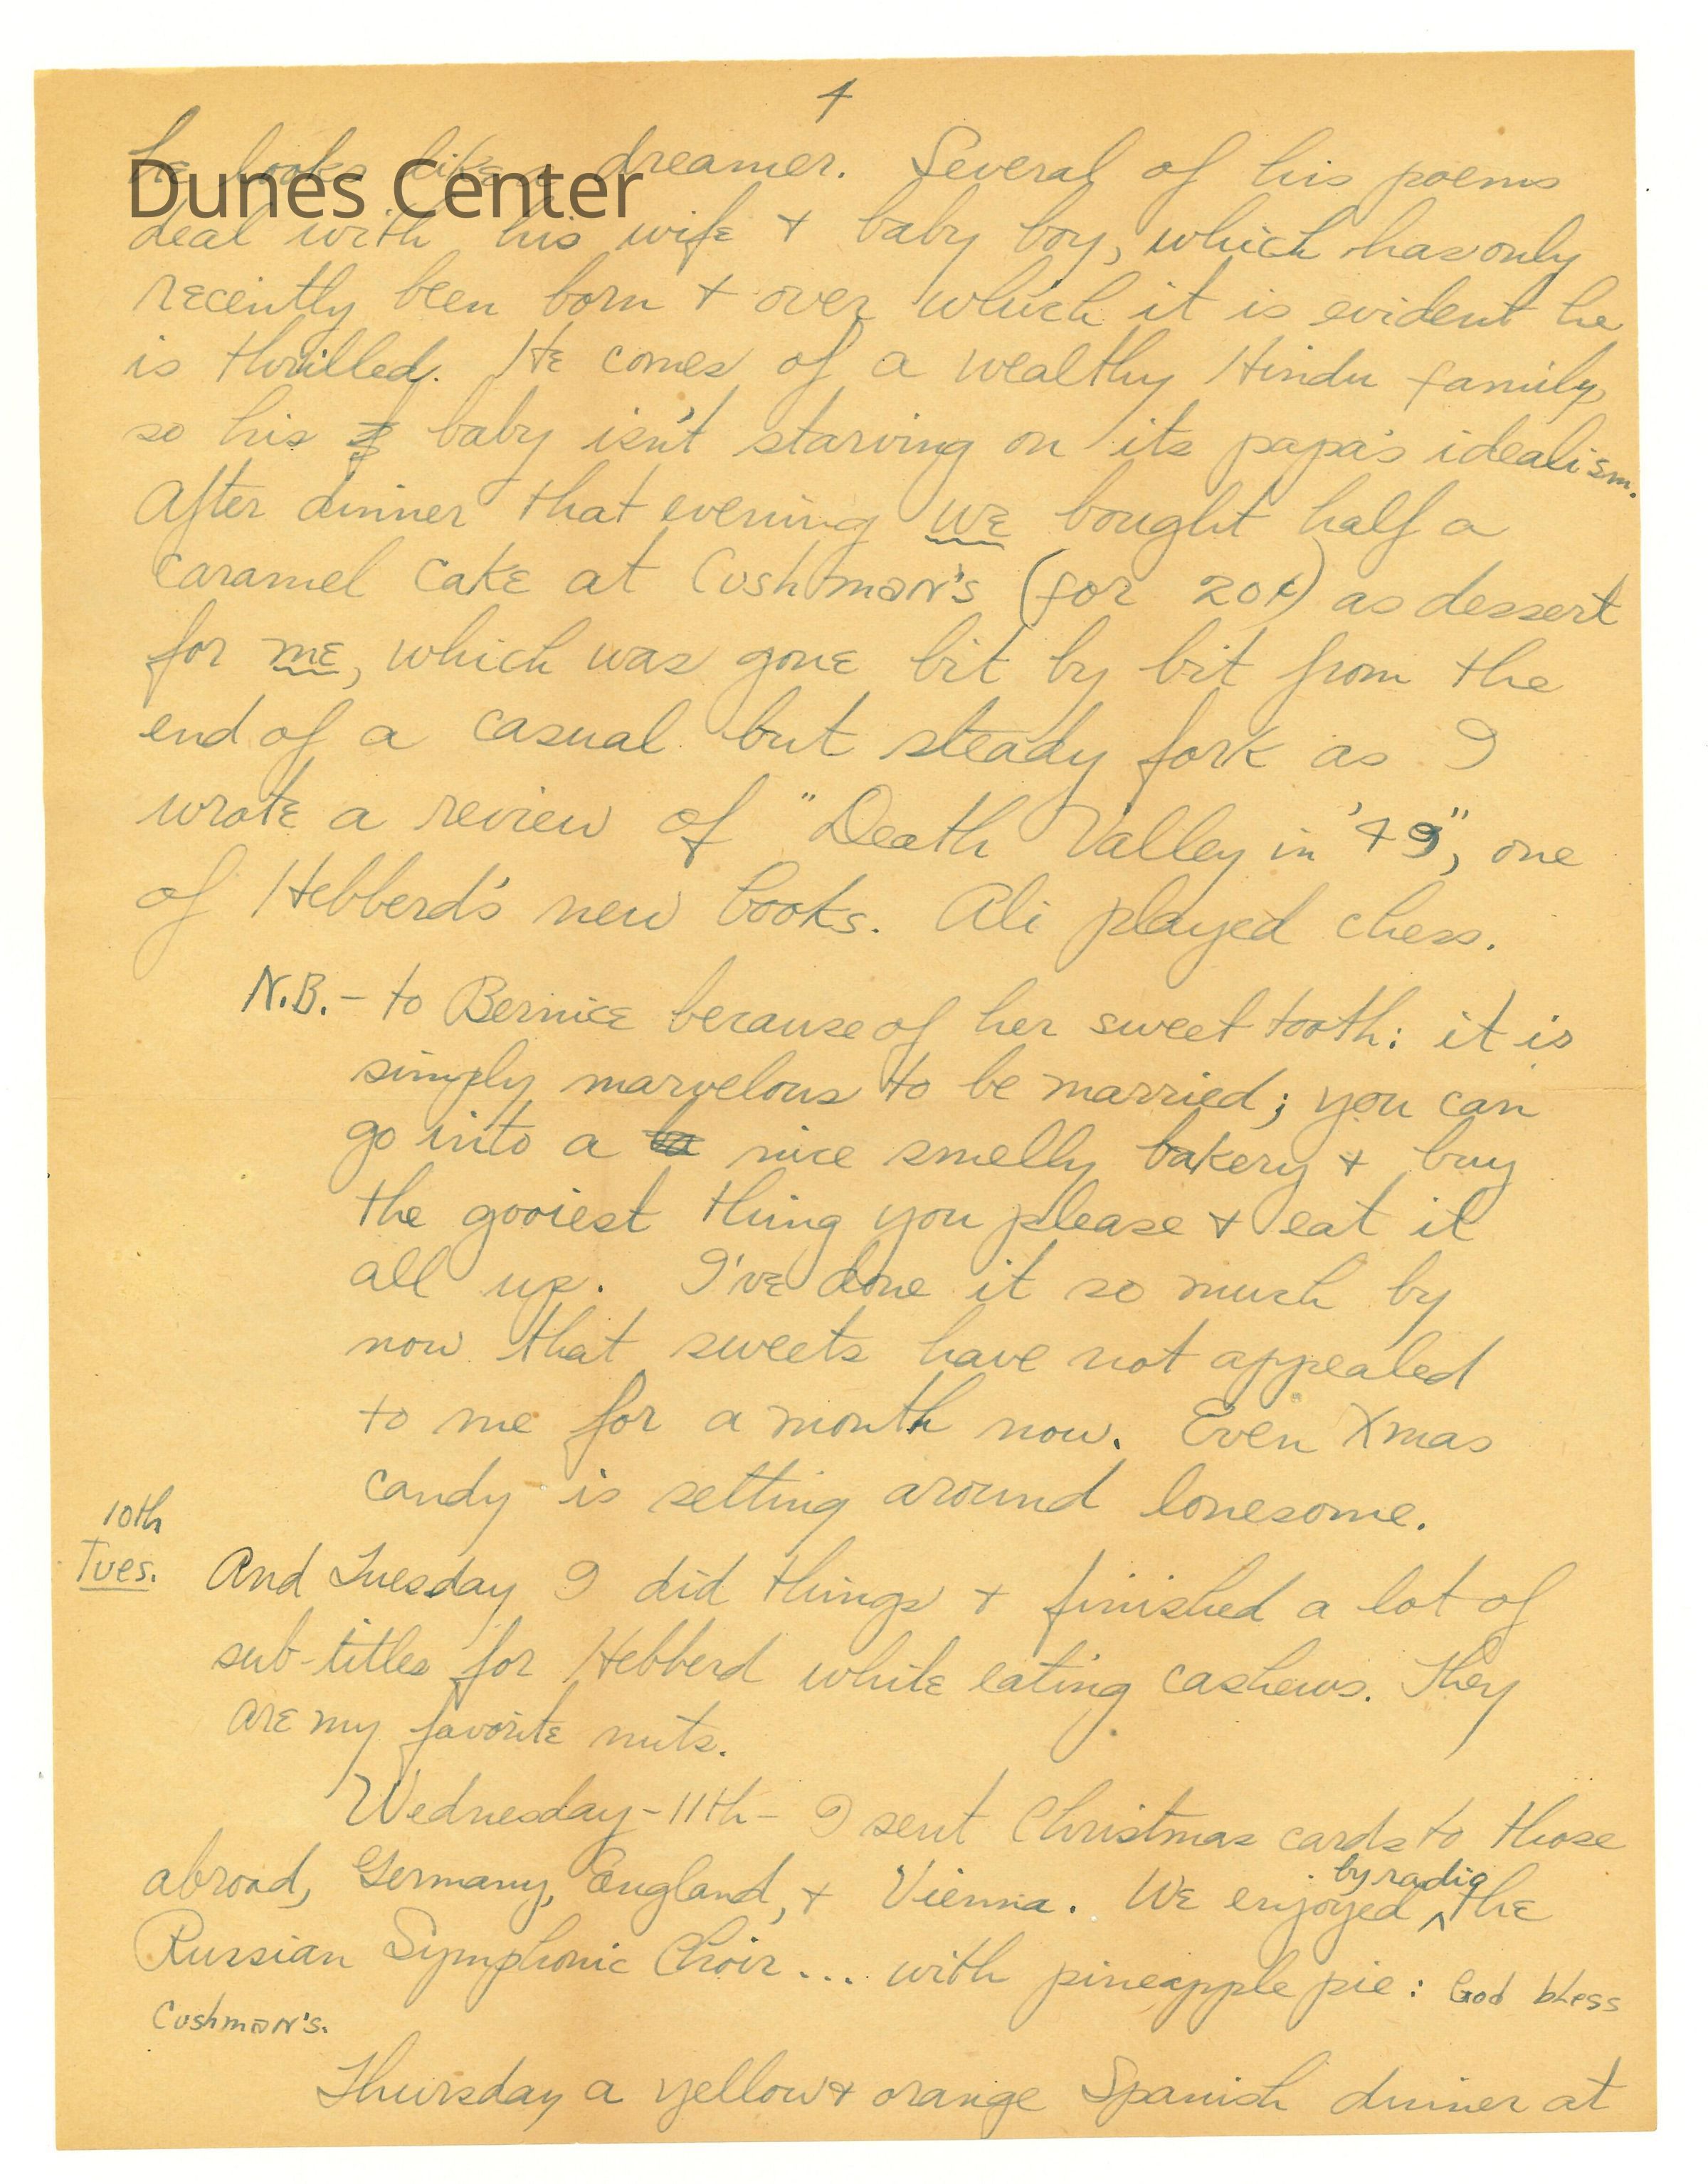 4
Dunes Center
he looks like a dreamer. Several of his poems
deal with his wife + baby boy, which has only
recently been born + over which it is evident he
is thrilled. He comes of a wealthy Hindu family
so his baby isn't starving on its papa's idealism.
After dinner that evening we bought half a
caramel cake at Cushman's (for 20¢) as dessert
for me, which was gone bit by bit from the
end of a casual but steady fork as I
wrote a review of "Death Valley in '49", one
of Hebberd's new books. Ali played chess.
N.B. - to Bernice because of her sweet tooth: it is
simply marvelous to be married; you can
go into a nice smelly bakery + buy
the gooiest thing you please + eat it
all up. I've done it so much by
now that sweets have not appealed
to me for a month now. Even Xmas
candy is setting around lonesome.
10th
Tues. And Tuesday I did things + finished a lot of
sub-titles for Hebberd while eating cashews. They
are my favorite nuts.
Wednesday - 11th - I sent Christmas cards to those
abroad, Germany, England, + Vienna. We enjoyed by radio the
Russian Symphonic Choir... with pineapple pie: God bless
Cushman's.
Thursday a yellow + orange Spanish dinner at